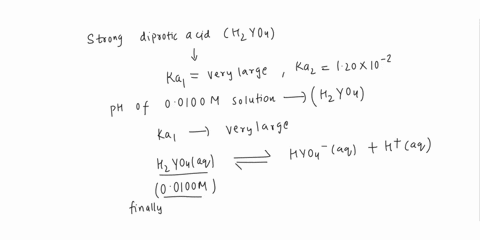 Strong diprotic acid (H₂YO₄)
↓
Ka₁ = very large , Ka₂ = 1.20×10⁻²
pH of 0.0100 M solution → (H₂YO₄)
Ka₁ → very large
H₂YO₄(aq) ⇌ HYO₄⁻(aq) + H⁺(aq)
(0.0100M)
finally